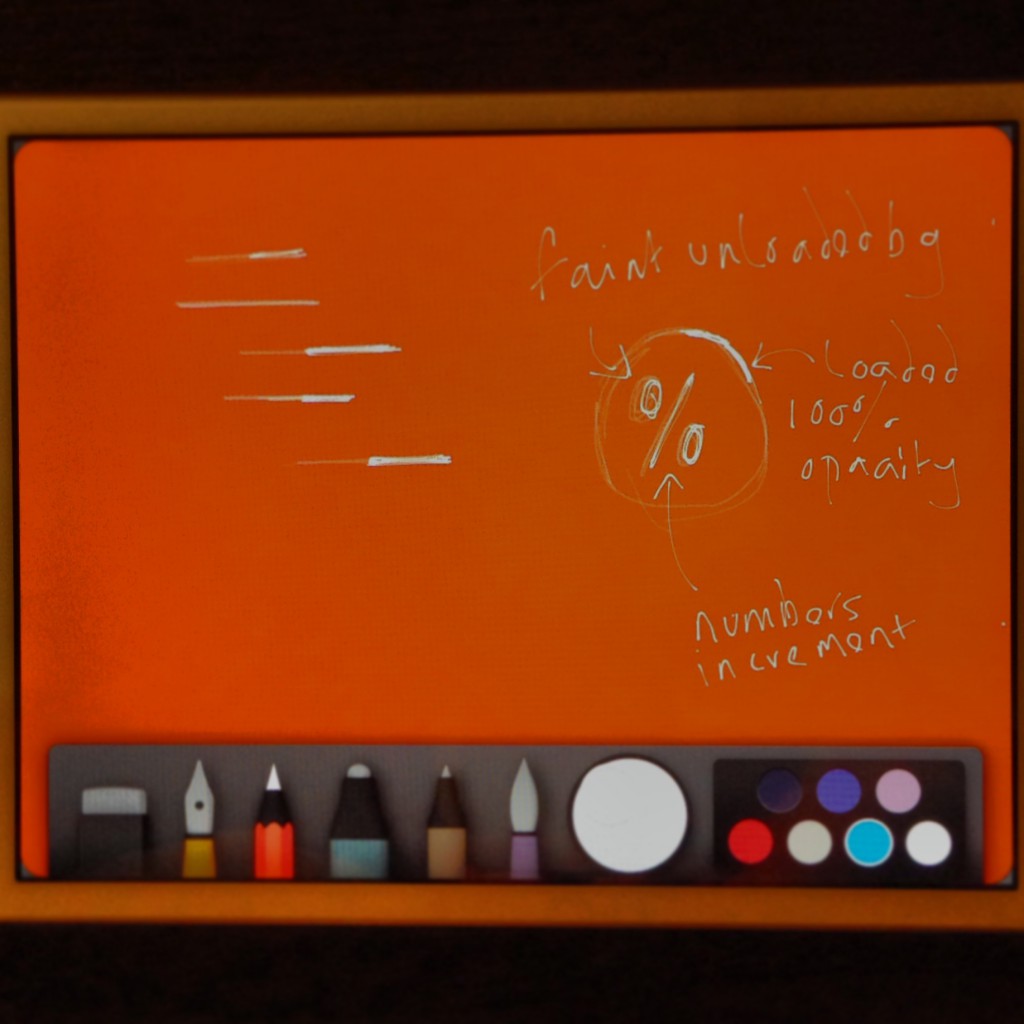 faint unloaded bg
%
loaded
100%
opacity
numbers
increment